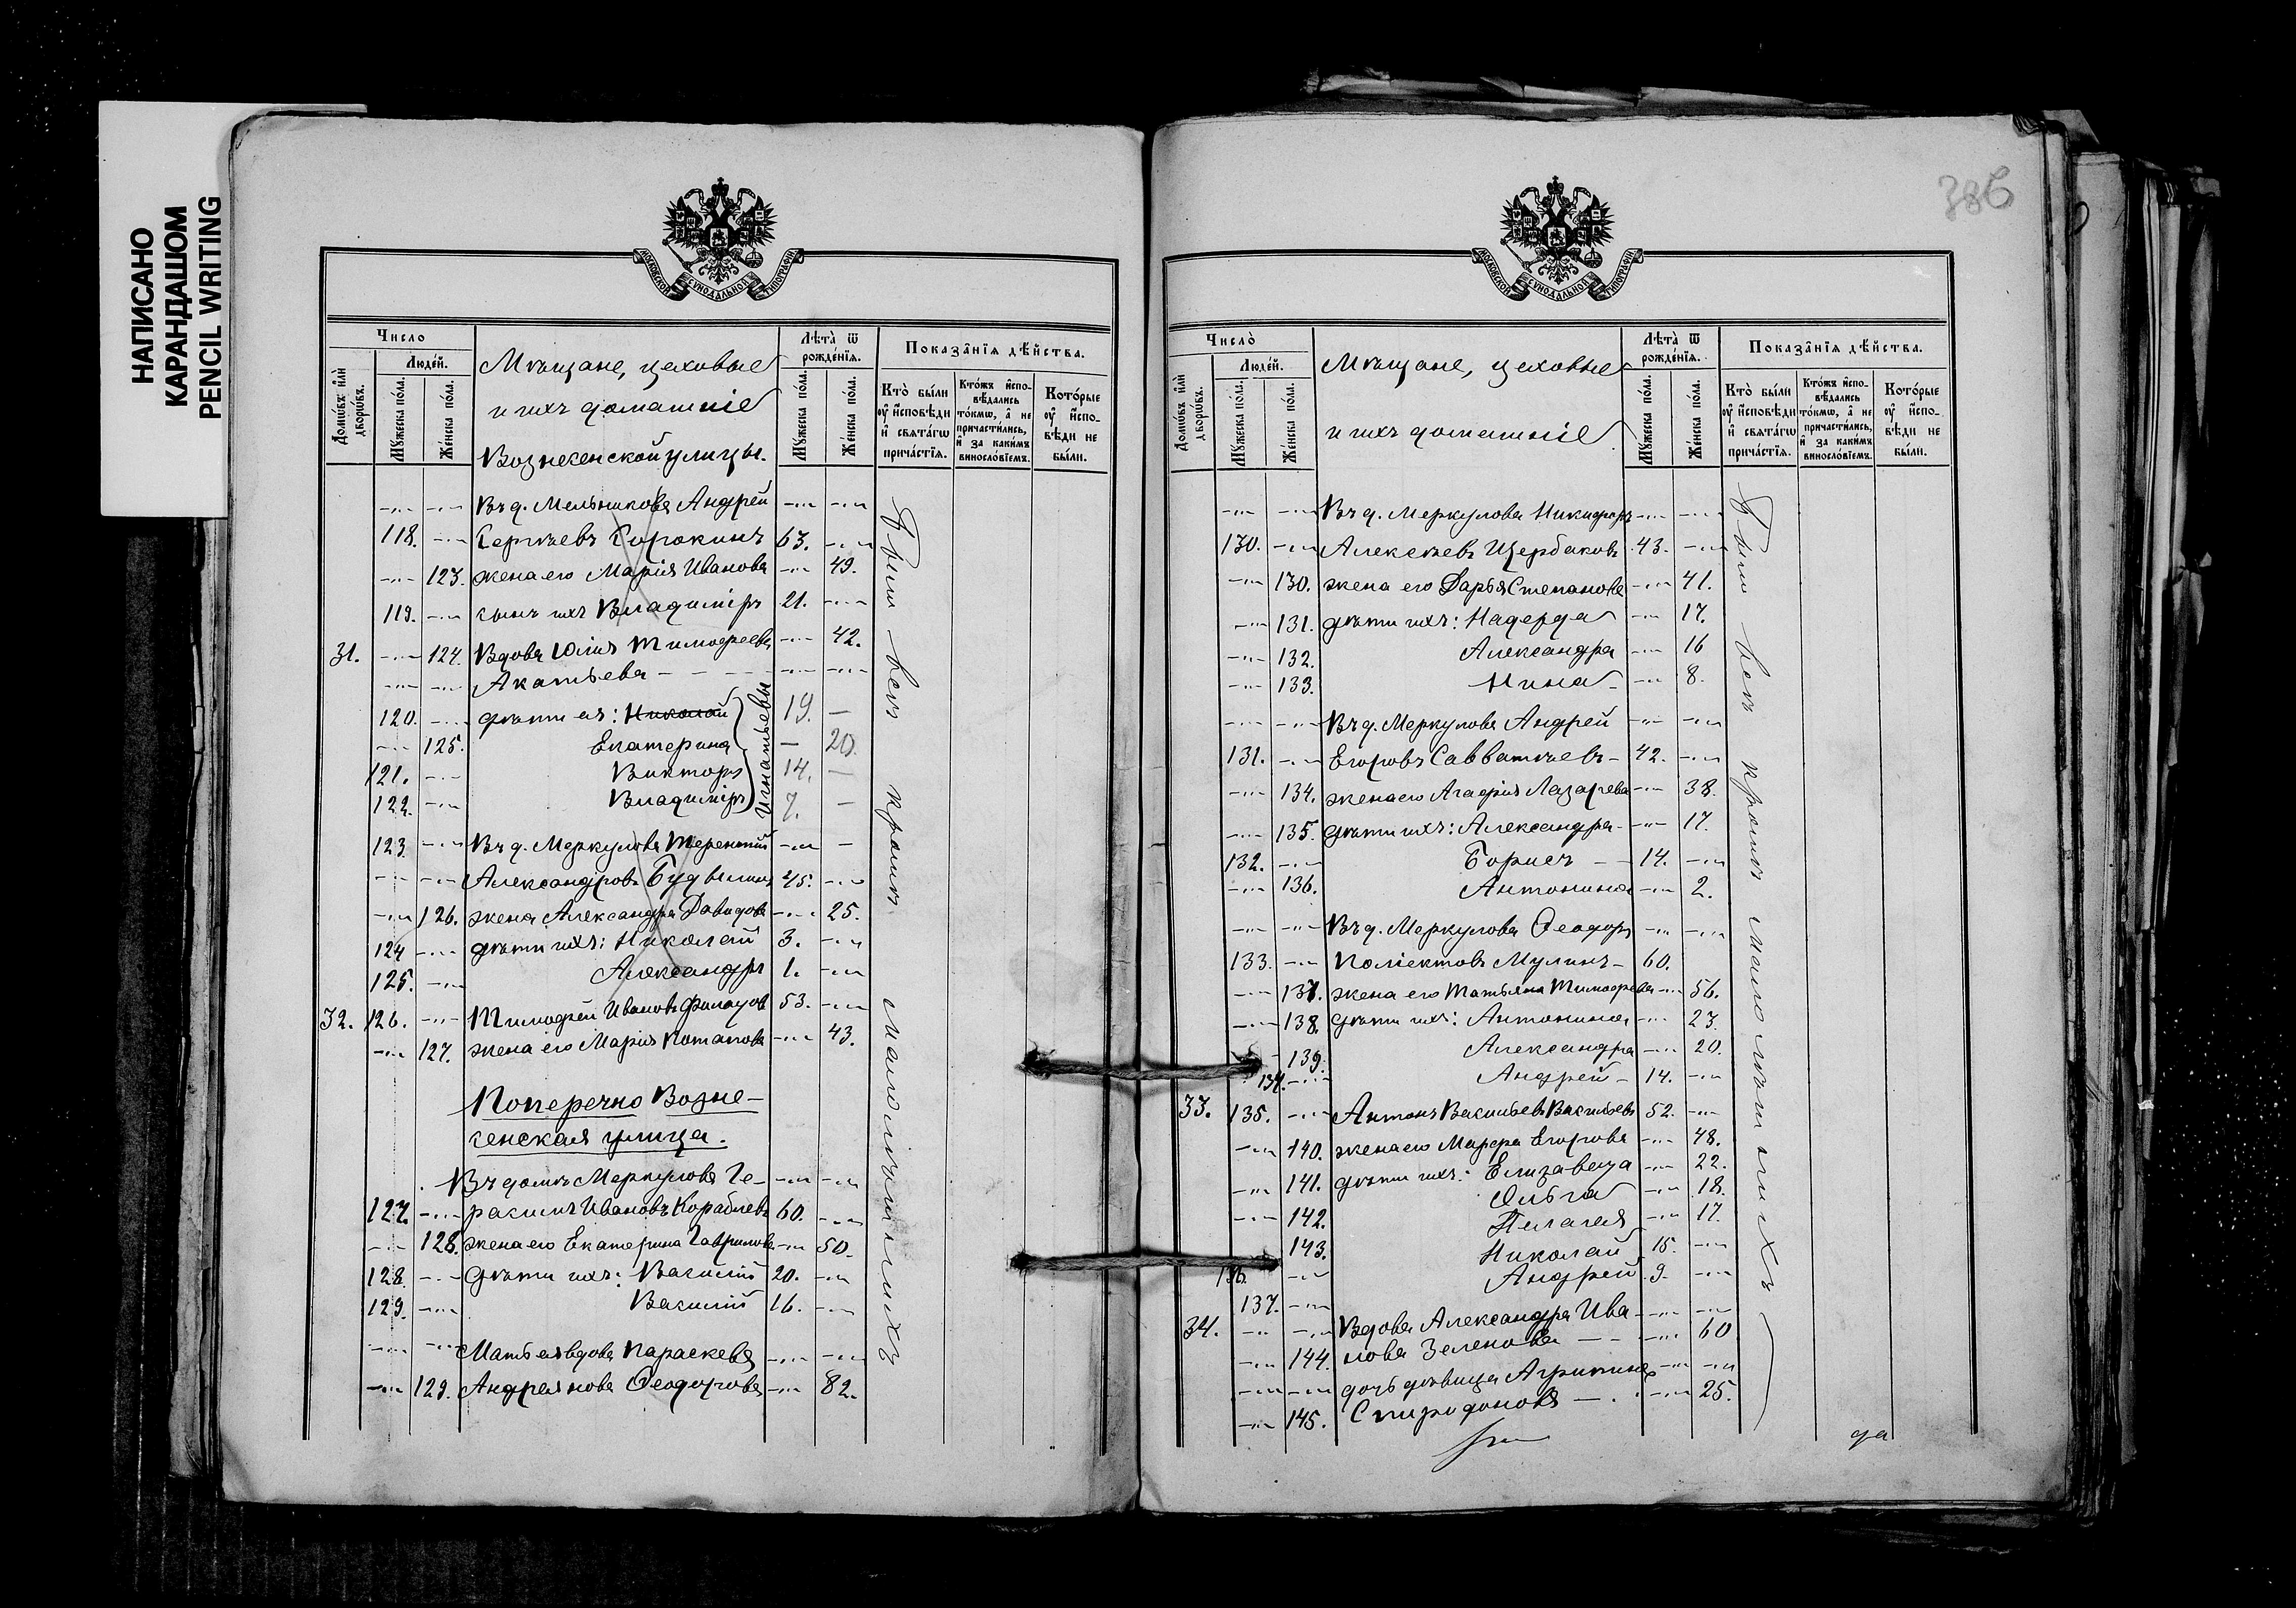 НАПИСАНО
КАРАНДАШОМ
PENCIL WRITING
386
МОСКОВСКОЙ СѴНОДАЛЬНОЙ ТИПОГРАФІИ
Число
Людей.
Домѡвъ или дворѡвъ.
Мꙋжеска пола.
Женска пола.
Мѣщане, цеховые
и ихъ домашніе
Вознесенской улицы.
Лѣта ѿ рожденія.
Мꙋжеска пола.
Женска пола.
Показанія дѣйства.
Кто были ᲂу исповѣди и свѧтагѡ причастїѧ.
Ктожъ исповѣдались токмѡ, а не причастились, и за какимъ винословїемъ.
Которые ᲂу исповѣди не были.
Въ д. Мельникова Андрей
118. Сергѣевъ Сорокинъ 63.
123. жена его Марія Иванова 49.
119. сынъ ихъ Владиміръ 21.
31. 124. Вдова Юлія Тимофеева 42.
Акатьева
120. дѣти ея: Николай 19. —
125. Екатерина — 20.
121. Викторъ 14. —
122. Владиміръ 7. —
Игнатьевы
123. Въ д. Меркулова Терентій —
Александровъ 45.
126. жена Александра Давидова 25.
124 дѣти ихъ: Николай 3.
125. Александръ 1.
32. 126. Тимофей Ивановъ 53.
127. жена его Марія Потапова 43.
Поперечно Возне-
сенская улица.
Въ домѣ Меркулова Ге-
127. расимъ Ивановъ Кораблевъ 60.
128. жена его Екатерина Гаврилова 50.
128. дѣти ихъ: Василій 20.
129. Василій 16.
Мать ея вдова Параскева
129. Андреянова Ѳеодорова 82.
Были всѣ кромѣ малолѣтнихъ
МОСКОВСКОЙ СѴНОДАЛЬНОЙ ТИПОГРАФІИ
Число
Людей.
Домѡвъ или дворѡвъ.
Мꙋжеска пола.
Женска пола.
Мѣщане, цеховые
и ихъ домашніе
Лѣта ѿ рожденія.
Мꙋжеска пола.
Женска пола.
Показанія дѣйства.
Кто были ᲂу исповѣди и свѧтагѡ причастїѧ.
Ктожъ исповѣдались токмѡ, а не причастились, и за какимъ винословїемъ.
Которые ᲂу исповѣди не были.
Въ д. Меркулова Никифоръ
130. Алексѣевъ Щербаковъ 43.
130. жена его Дарья Степанова 41.
131. дѣти ихъ: Надежда 17.
132. Александра 16
133. Нина 8.
Въ д. Меркулова Андрей
131. Егоровъ Савватѣевъ 42.
134. жена его Агафія Лазарева 38.
135. дѣти ихъ: Александра 17.
132. Борисъ 14.
136. Антонина 2.
Въ д. Меркулова Ѳеодоръ
133. Поліектовъ Мулинъ 60.
137. жена его Татьяна Тимофеева 56.
138. дѣти ихъ: Антонина 23.
139. Александра 20.
134. Андрей 14.
33. 135. Антонъ Васильевъ Васильевъ 52.
140. жена его Марфа Егорова 48.
141. дѣти ихъ: Елизавета 22.
142. Ольга 18.
143. Пелагея 17.
136. Николай 15.
137. Андрей 9.
34. Вдова Александра Ива-
144. нова Зеленова 60
дочь дѣвица Агрипина
145. Спиридонова 25.
Были всѣ кромѣ малолѣтнихъ